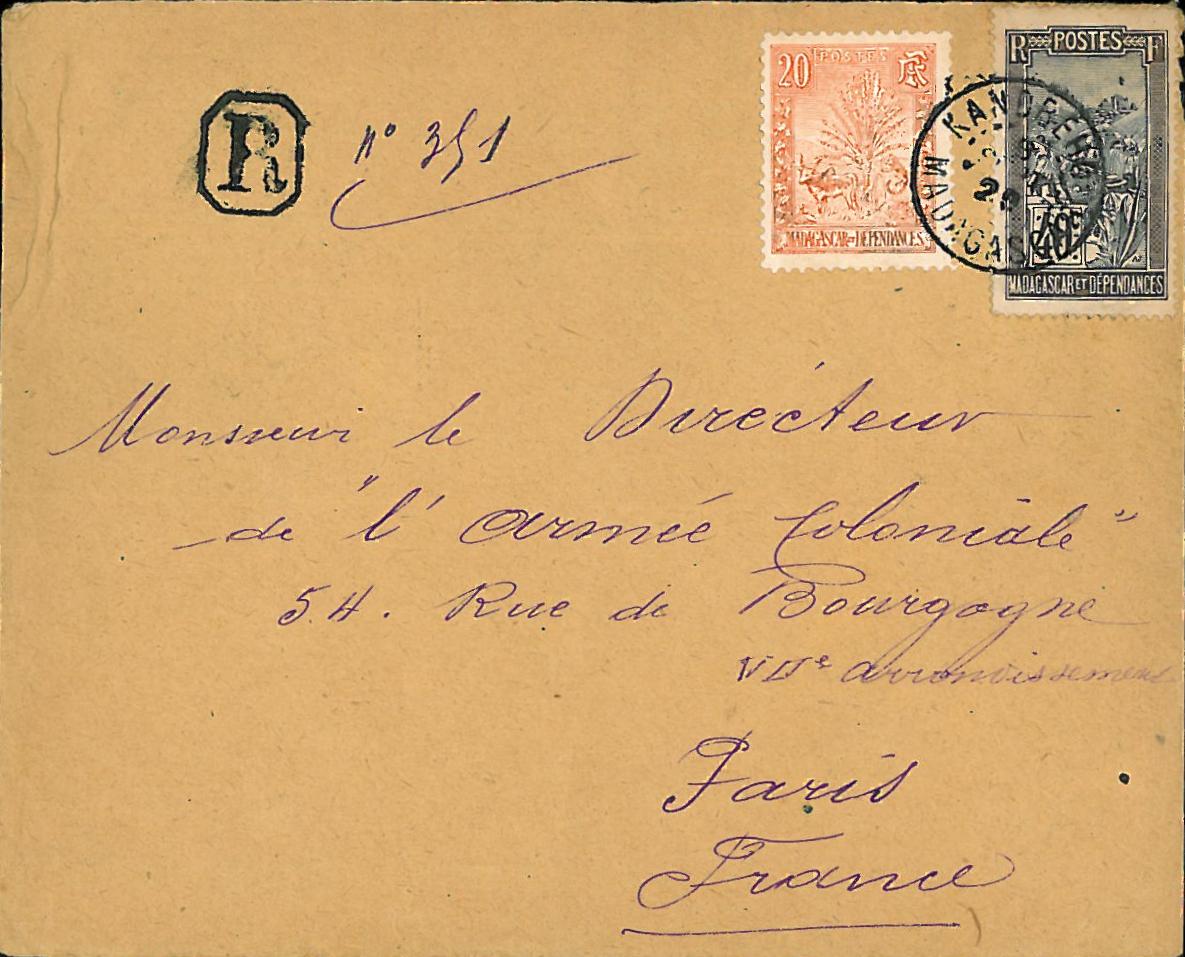 R
N° 351
20 POSTES RF
MADAGASCAR ET DÉPENDANCES
R POSTES F
40c
MADAGASCAR ET DÉPENDANCES
KANDREHO
MADAGASCAR
Monsieur le Directeur
de "l'Armée Coloniale"
54. Rue de Bourgogne
VIIe arrondissement
Paris
France